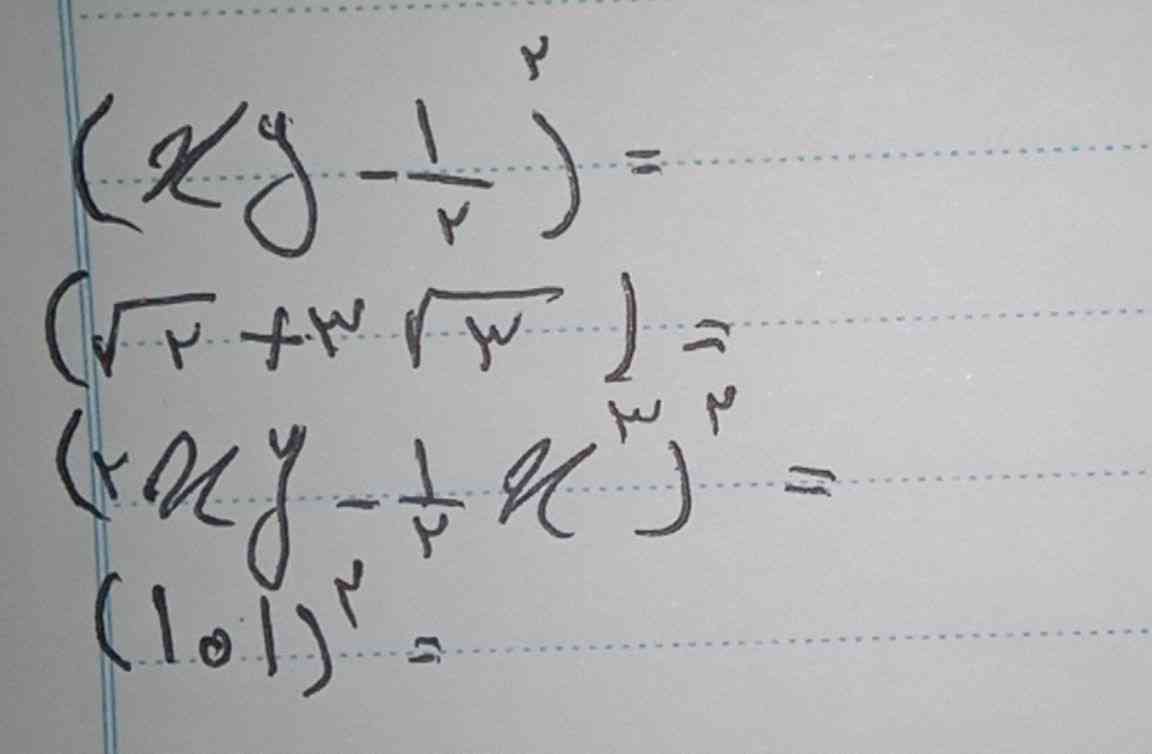 (xy - ۱/۲)^۲ =
(√۲ + ۳√۳) =
(۲xy - ۱/۲ x^۳)^۲ =
(۱۰۱)^۲ =